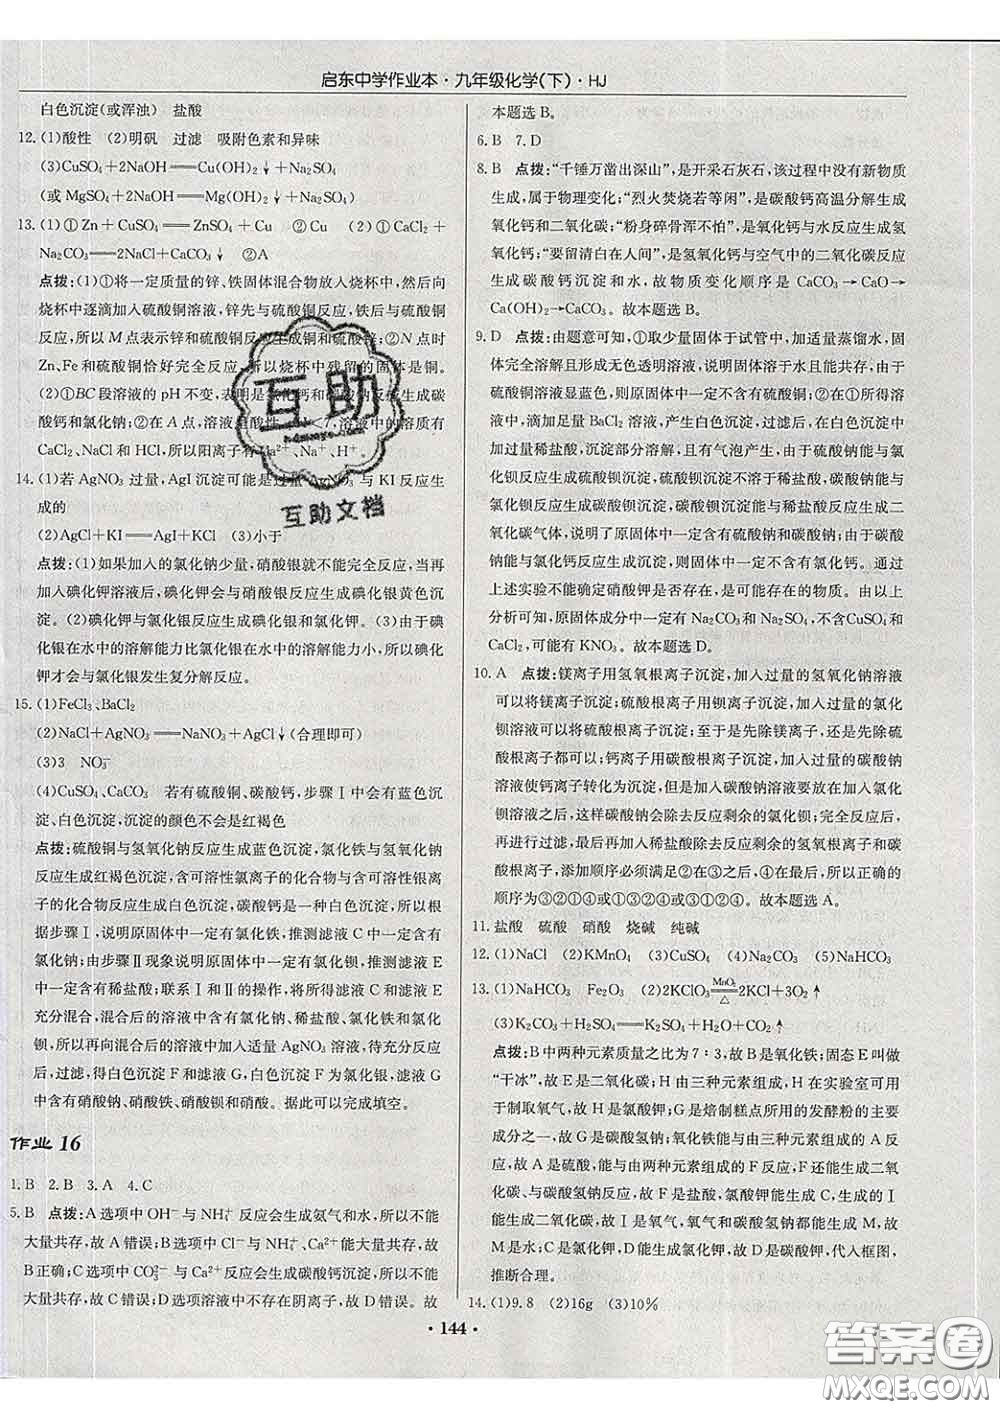 启东中学作业本·九年级化学(下)·HJ
白色沉淀(或浑浊) 盐酸
12. (1)酸性 (2)明矾 过滤 吸附色素和异味
(3)CuSO₄+2NaOH══Cu(OH)₂↓+Na₂SO₄
(或 MgSO₄+2NaOH══Mg(OH)₂↓+Na₂SO₄)
13. (1)①Zn+CuSO₄══ZnSO₄+Cu ②Cu (2)①CaCl₂+
Na₂CO₃══2NaCl+CaCO₃↓ ②A
点拨:(1)①将一定质量的锌、铁固体混合物放入烧杯中,然后向
烧杯中逐滴加入硫酸铜溶液,锌先与硫酸铜反应,铁后与硫酸铜
反应,所以M点表示锌和硫酸铜反应生成铜和硫酸锌;②N点时
Zn、Fe和硫酸铜恰好完全反应,所以烧杯中残留的固体是铜。
(2)①BC段溶液的pH不变,表明是氯化钙和碳酸钠反应生成碳
酸钙和氯化钠;②在A点,溶液显酸性,pH<7,依然含有
CaCl₂、NaCl和HCl,所以阳离子有Ca²⁺、Na⁺、H⁺。
14. (1)若 AgNO₃ 过量,AgI沉淀可能是过量 AgNO₃ 与 KI 反应生
成的
(2)AgCl+KI══AgI+KCl (3)小于
点拨:(1)如果加入的氯化钠少量,硝酸银就不能完全反应,当再
加入碘化钾溶液后,碘化钾会与硝酸银反应生成碘化银黄色沉
淀。(2)碘化钾与氯化银反应生成碘化银和氯化钾。(3)由于碘
化银在水中的溶解能力比氯化银在水中的溶解能力弱,所以碘化
钾才会与氯化银发生复分解反应。
15. (1)FeCl₃、BaCl₂
(2)NaCl+AgNO₃══NaNO₃+AgCl↓(合理即可)
(3)3 NO₃⁻
(4)CuSO₄、CaCO₃ 若有硫酸铜、碳酸钙,步骤Ⅰ中会有蓝色沉
淀、白色沉淀,沉淀的颜色不会是红褐色
点拨:硫酸铜与氢氧化钠反应生成蓝色沉淀,氯化铁与氢氧化钠
反应生成红褐色沉淀,含可溶性氯离子的化合物与含可溶性银离
子的化合物反应生成白色沉淀,碳酸钙是一种白色沉淀,所以根
据步骤Ⅰ现象说明原固体中一定有氯化铁,推测滤液C中一定含
有氯化钠;由步骤Ⅱ现象说明原固体中一定有氯化钡,推测滤液E
中一定含有稀盐酸;联系Ⅰ和Ⅱ的操作,将所得滤液C和滤液E
充分混合,混合后的溶液中含有氯化钠、稀盐酸、氯化铁和氯化
钡,如再向混合后的溶液中加入适量 AgNO₃ 溶液,待充分反应
后,过滤,得白色沉淀F和滤液G,白色沉淀F为氯化银,滤液G
中含有硝酸钠、硝酸铁、硝酸钡和硝酸。据此可以完成填空。
作业 16
1. B 2. B 3. A 4. C
5. B 点拨:A选项中OH⁻与NH₄⁺反应会生成氨气和水,所以不能
大量共存,故A错误;B选项中Cl⁻与NH₄⁺、Ca²⁺能大量共存,故
B正确;C选项中CO₃²⁻与Ca²⁺反应会生成碳酸钙沉淀,所以不能
大量共存,故C错误;D选项溶液中不存在阴离子,故D错误。故
本题选B。
6. B 7. D
8. B 点拨:“千锤万凿出深山”,是开采石灰石,该过程中没有新物质
生成,属于物理变化;“烈火焚烧若等闲”,是碳酸钙高温分解生成
氧化钙和二氧化碳;“粉身碎骨浑不怕”,是氧化钙与水反应生成氢
氧化钙;“要留清白在人间”,是氢氧化钙与空气中的二氧化碳反应
生成碳酸钙沉淀和水,故物质变化顺序是CaCO₃→CaO→
Ca(OH)₂→CaCO₃。故本题选B。
9. D 点拨:由题意可知,①取少量固体于试管中,加适量蒸馏水,固
体完全溶解且形成无色透明溶液,说明固体溶于水且能共存,由于
硫酸铜溶液显蓝色,则原固体中一定不含有硫酸铜;②在①所得溶
液中,滴加足量BaCl₂溶液,产生白色沉淀,过滤后,在沉淀中加入
过量稀盐酸,沉淀部分溶解,且有气泡产生,由于硫酸钠能与氯化
钡反应生成硫酸钡沉淀,硫酸钡沉淀不溶于稀盐酸,碳酸钠能与氯
化钡反应生成碳酸钡沉淀,碳酸钡沉淀能与稀盐酸反应生成二氧
化碳气体,说明了原固体中一定含有硫酸钠和碳酸钠,由于碳酸
钠能与氯化钙反应生成沉淀,则固体中一定不含有氯化钙。通过
上述实验不能确定硝酸钾是否存在,是可能存在的物质。由以上
分析可知,原固体成分中一定有Na₂CO₃和Na₂SO₄,不含CuSO₄和
CaCl₂,可能有KNO₃。故本题选D。
10. A 点拨:镁离子用氢氧根离子沉淀,加入过量的氢氧化钠溶液
可以将镁离子沉淀;硫酸根离子用钡离子沉淀,加入过量的氯化
钡溶液可以将硫酸根离子沉淀;至于是先除镁离子,还是先除硫
酸根离子都可以;钙离子用碳酸根离子沉淀,加入过量的碳酸钠
溶液使钙离子转化为沉淀,但是加入的碳酸钠溶液要放在加入的
氯化钡溶液之后,这样碳酸钠会除去反应剩余的氯化钡;完全反应后,
再进行过滤,最后用稀盐酸除去反应剩余的氢氧根离子和碳
酸根离子,添加顺序必须满足②在③前,④在最后,所以正确的
顺序为③②①④或①③②④或③①②④。故本题选A。
11. 盐酸 硫酸 硝酸 烧碱 纯碱
12. (1)NaCl (2)KMnO₄ (3)CuSO₄ (4)Na₂CO₃ (5)NaHCO₃
13. (1)NaHCO₃ Fe₂O₃ (2)2KClO₃ MnO₂══△ 2KCl+3O₂↑
(3)K₂CO₃+H₂SO₄══K₂SO₄+H₂O+CO₂↑
点拨:B中两种元素质量之比为7∶3,故B是氧化铁;固态E叫做
“干冰”,故E是二氧化碳;H由三种元素组成,H在实验室可用
于制取氧气,故H是氯酸钾;G是焙制糕点所用的发酵粉的主要
成分之一,故G是碳酸氢钠;氧化铁能与由三种元素组成的A反
应,故A是硫酸,能与由两种元素组成的A反应,F还能生成二氧化
碳、与氯化钡反应,故F是碳酸钾,氯酸钾能生成C,生成的C能
生成I,故I是氧气,氧气和碳酸钠都能生成M,故
M是水;C是氯化钾,D能生成氯化钠,D是氢氧化钠,代入框图,
推断合理。
14. (1)9.8 (2)16g (3)10%
·144·
互助
互助文档
答案圈
MXQE.COM